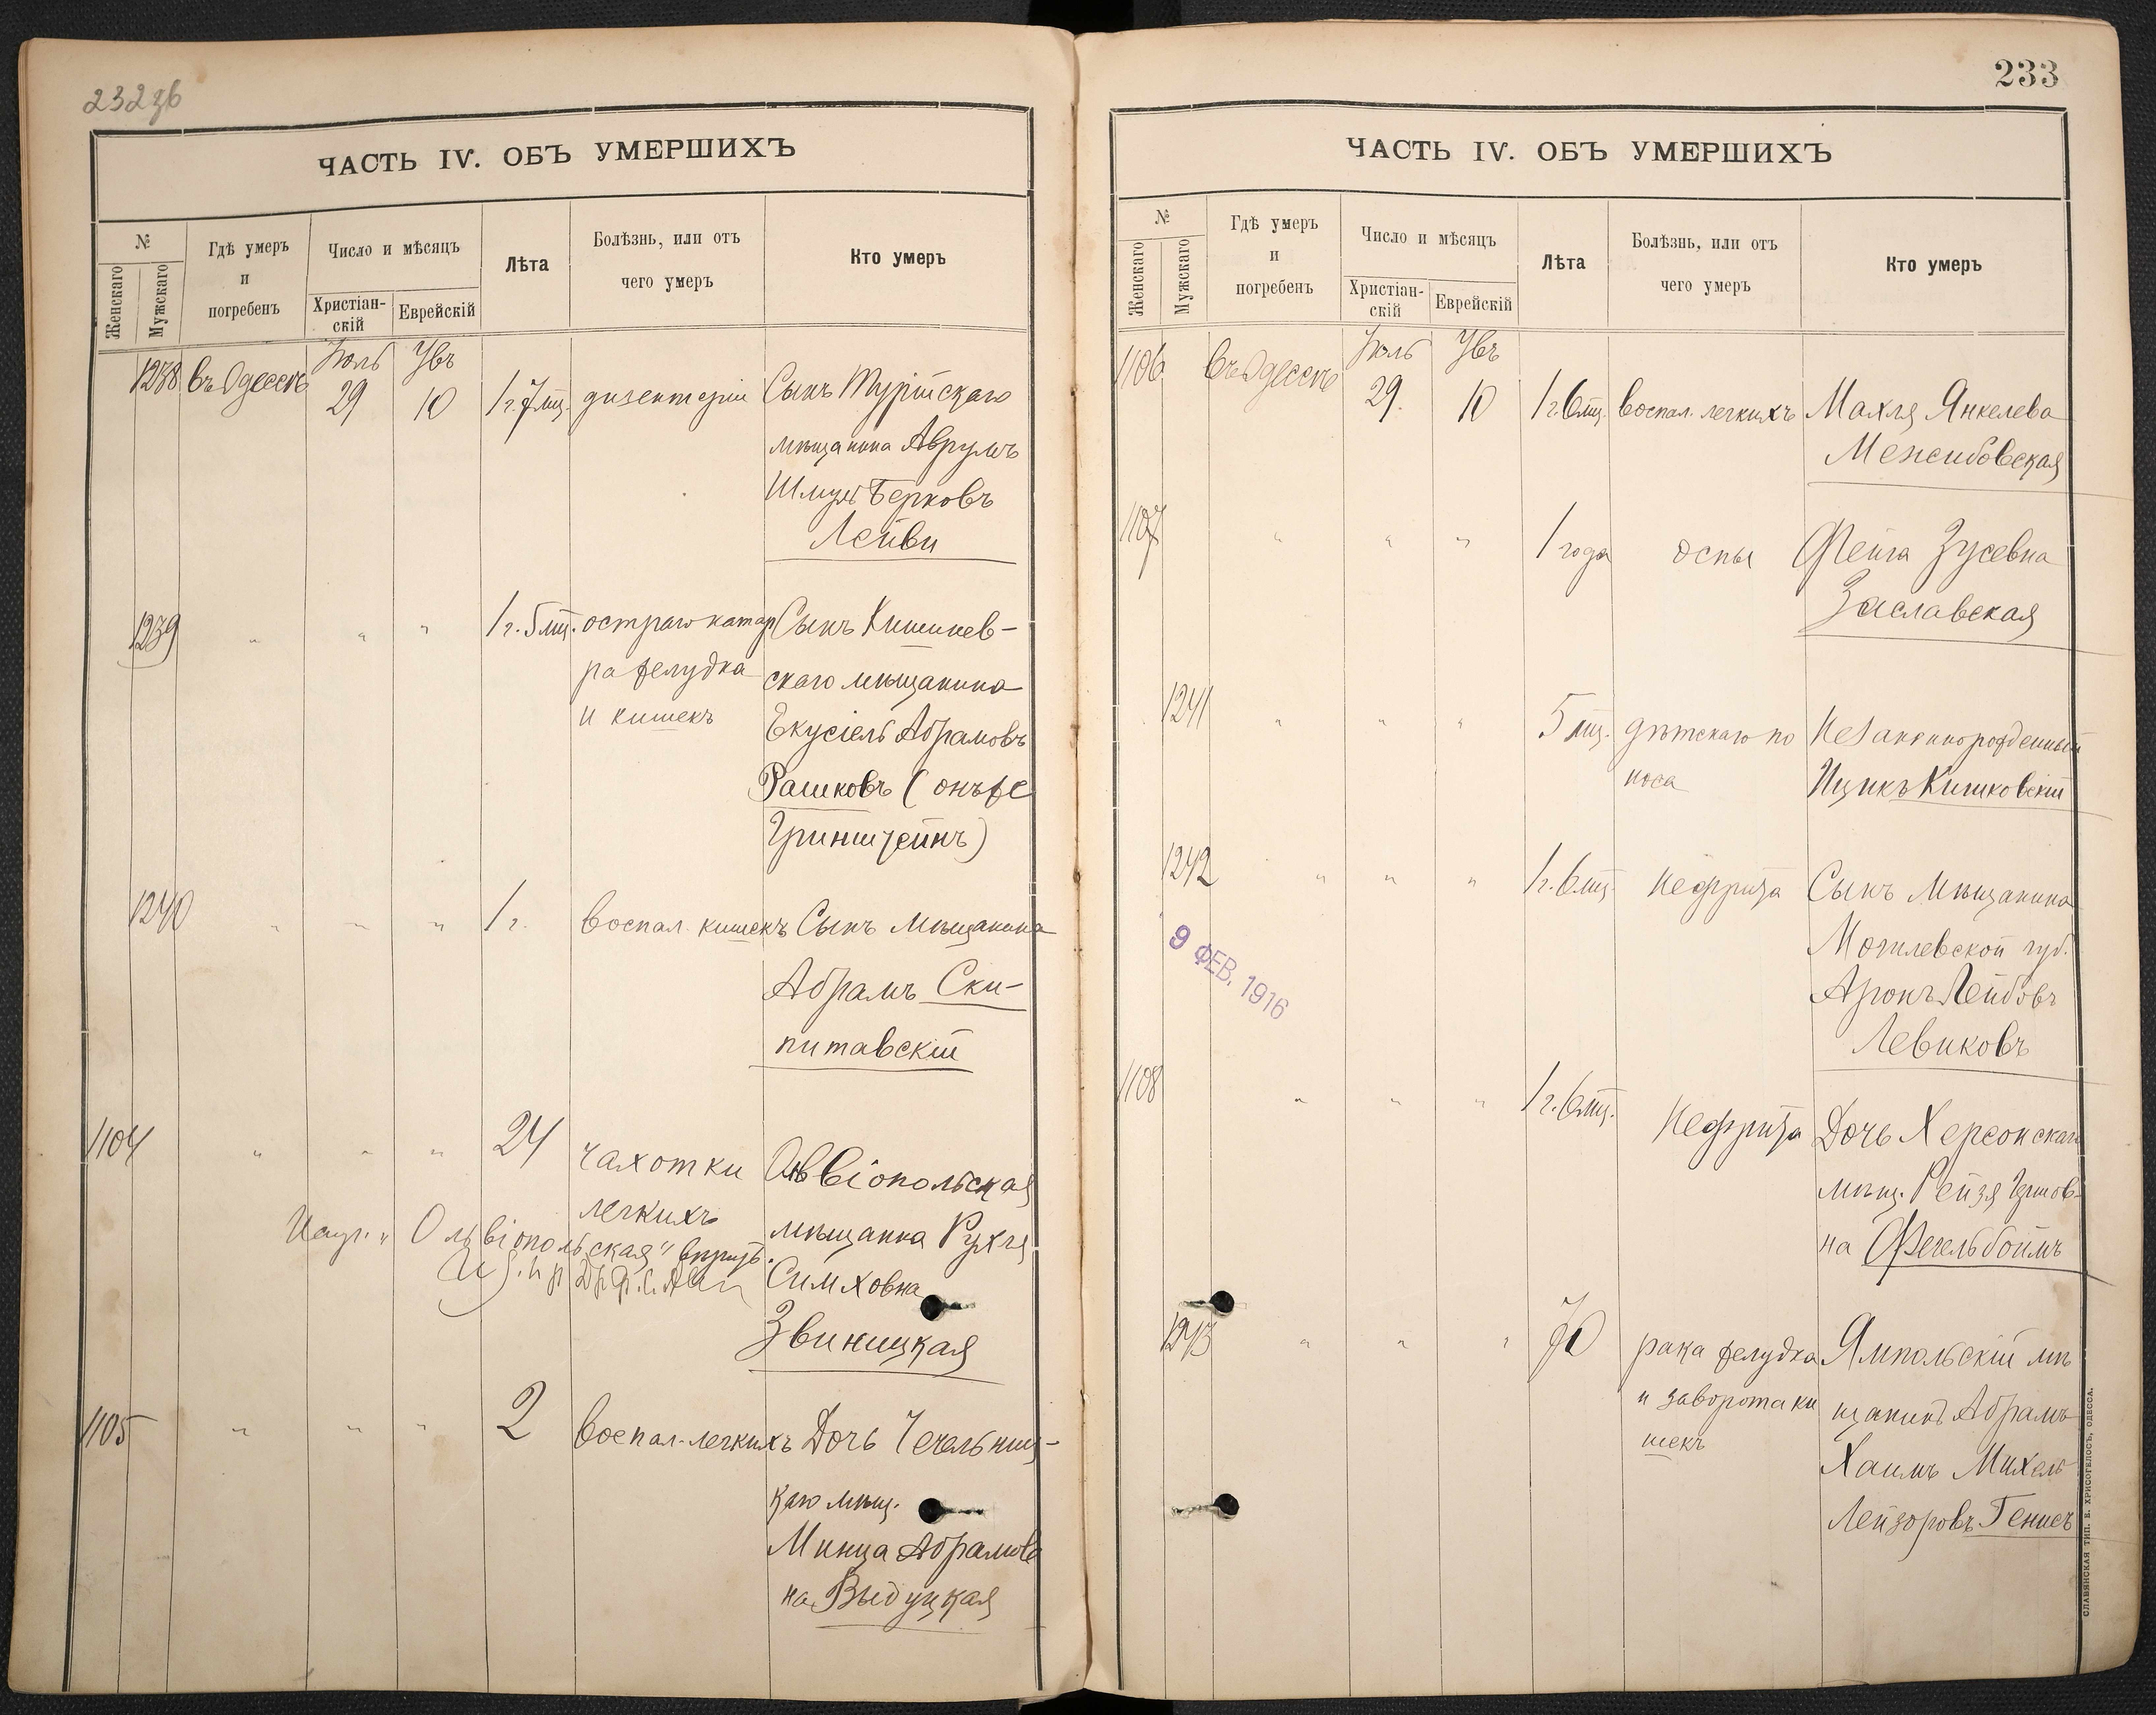 232зб
ЧАСТЬ IV. ОБЪ УМЕРШИХЪ
№
Женскаго
Мужскаго
Гдѣ умеръ
и
погребенъ
Число и мѣсяцъ
Христіан-
скій
Еврейскій
Лѣта
Болѣзнь, или отъ
чего умеръ
Кто умеръ
Іюль Увъ
1238 въ Одессѣ 29 10 1 г. 7 мц. дизентеріи Сынъ Турійскаго
мѣщанина Аврумъ
Шмуль Берковъ
Лейви
1239 " " " 1 г. 5 мц. остраго катар Сынъ Кишинев-
ра желудка скаго мѣщанина
и кишекъ Екусіель Абрамовъ
Рашковъ (онъ же
Гринштейнъ)
1240 " " " 1 г. воспал. кишекъ Сынъ мѣщанина
Абрамъ Ски-
питавскій
1104 " " " 24 чахотки Ольвіопольская
легкихъ мѣщанка Рухля
Надп. "Ольвіопольская"
Симховна
Звиницкая
1105 " " " 2 воспал. легкихъ Дочь Чечельниц-
каго мѣщ.
Минца Абрамов
на Выдуцкая
233
ЧАСТЬ IV. ОБЪ УМЕРШИХЪ
№
Женскаго
Мужскаго
Гдѣ умеръ
и
погребенъ
Число и мѣсяцъ
Христіан-
скій
Еврейскій
Лѣта
Болѣзнь, или отъ
чего умеръ
Кто умеръ
Іюль Увъ
1106 въ Одессѣ 29. 10 1 г. 6 мц. воспал. легкихъ Махля Янкелева
Межибовская
1107 " " " 1 года оспы Фейга Зусевна
Заславская
1241 " " " 5 мц. дѣтскаго по Незаконнорожденный
носа Ицикъ Кишковскій
1242 " " " 1 г. 6 мц. нефрита Сынъ мѣщанина
Могилевской губ.
Аронъ Лейбовъ
Левиковъ
9 ФЕВ. 1916
1108 " " " 1 г. 6 мц. Нефрита Дочь Херсонскаго
мѣщ. Рейзя Гершов-
на Фегельбоймъ
1243 " " " 70 рака желудка Ямпольскій мѣ
и заворота ки щанинъ Абрамъ
шекъ Хаимъ Михель
Лейзоровъ Генисъ
СЛАВЯНСКАЯ ТИП. Е. ХРИСОГЕЛОСЪ, ОДЕССА.